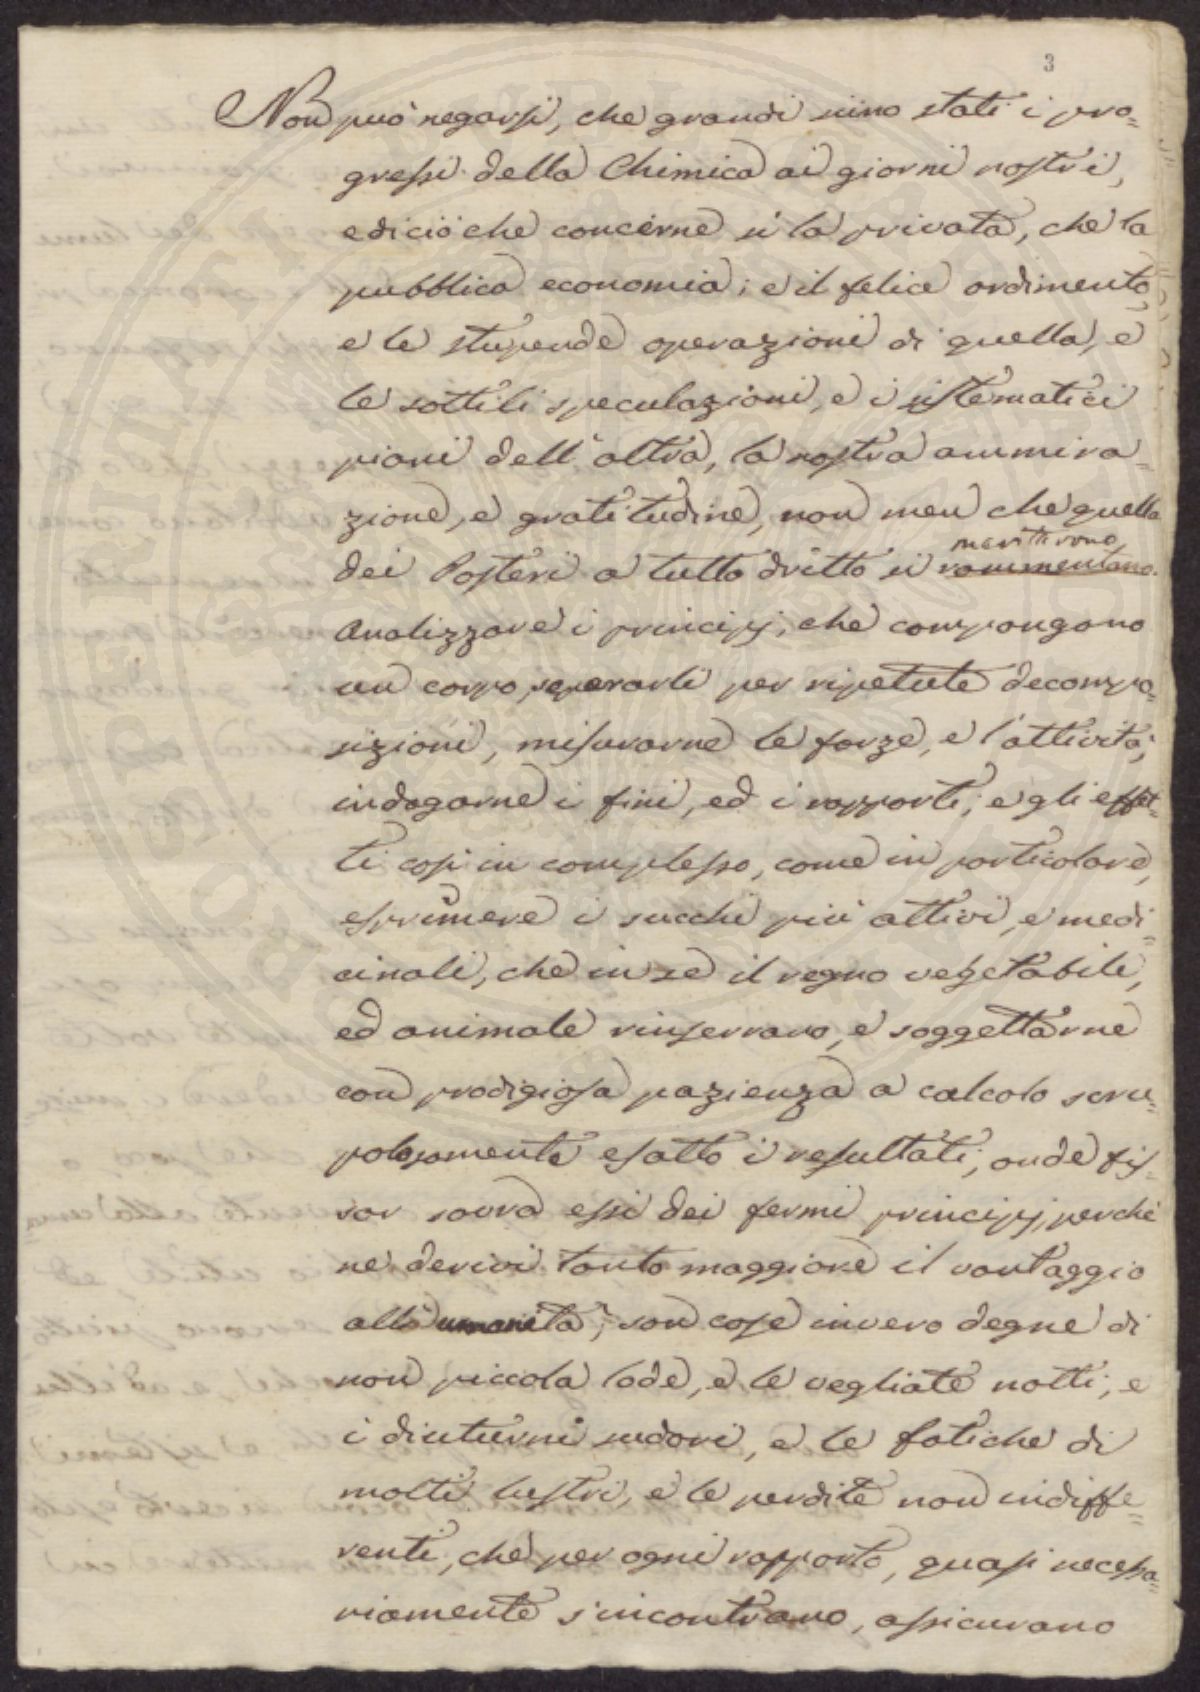 3
Non può negarsi, che grandi sieno stati i pro=
gressi della Chimica ai giorni nostri,
e di ciò che concerne sì la privata, che la
pubblica economia; e il felice ardimento,
e le stupende operazioni di quella, e
le sottili speculazioni, e i sistematici
piani dell'altra, la nostra ammira=
zione, e gratitudine, non men che quella
dei Posteri a tutto dritto si rammentano.
meritarono
Analizzare i principj, che compongono
un corpo, separarli per ripetute decompo=
sizioni, misurarne le forze, e l'attività;
indagarne i fini, ed i rapporti; e gli effet=
ti così in complesso, come in particolare,
esprimere i succhi più attivi, e medi=
cinali, che in se il regno vegetabile,
ed animale rinserrano, e soggettarne
con prodigiosa pazienza a calcolo scru=
polosamente esatto i resultati; onde fis=
sar sovra essi dei fermi principj, perchè
ne derivi tanto maggiore il vantaggio
alla umanità; son cose invero degne di
non piccola lode, e le vegliate notti, e
i diuturni sudori, e le fatiche di
molti lustri, e le perdite non indiffe=
renti, che per ogni rapporto, quasi necessa=
riamente s'incontrano, assicurano